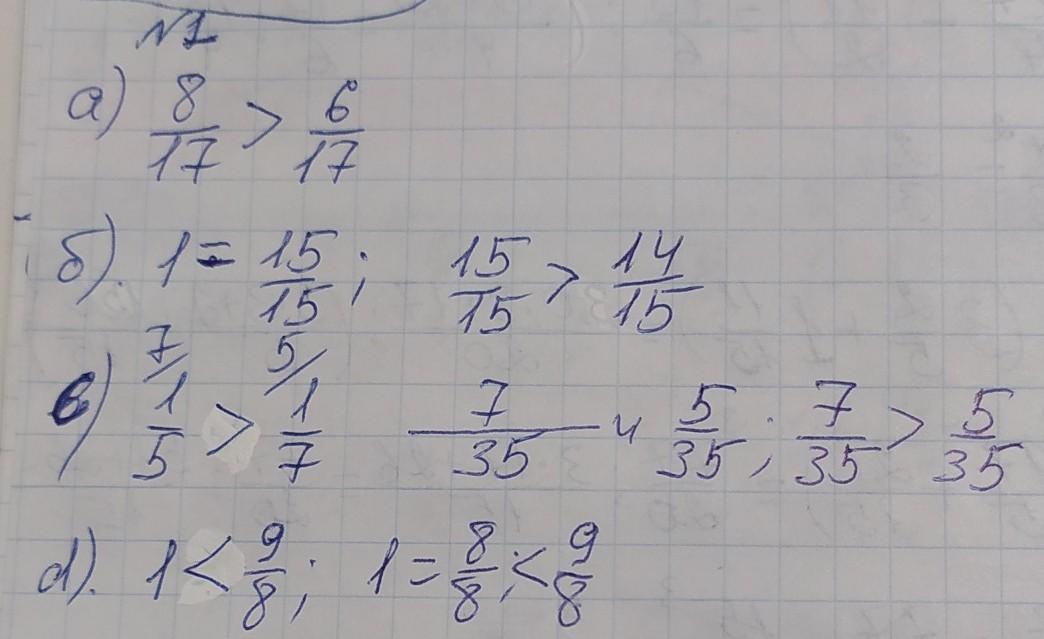 №1
а) 8/17 > 6/17
б). 1 = 15/15; 15/15 > 14/15
7/ 5/
в) 1/5 > 1/7 7/35 и 5/35; 7/35 > 5/35
d). 1 < 9/8; 1 = 8/8; < 9/8